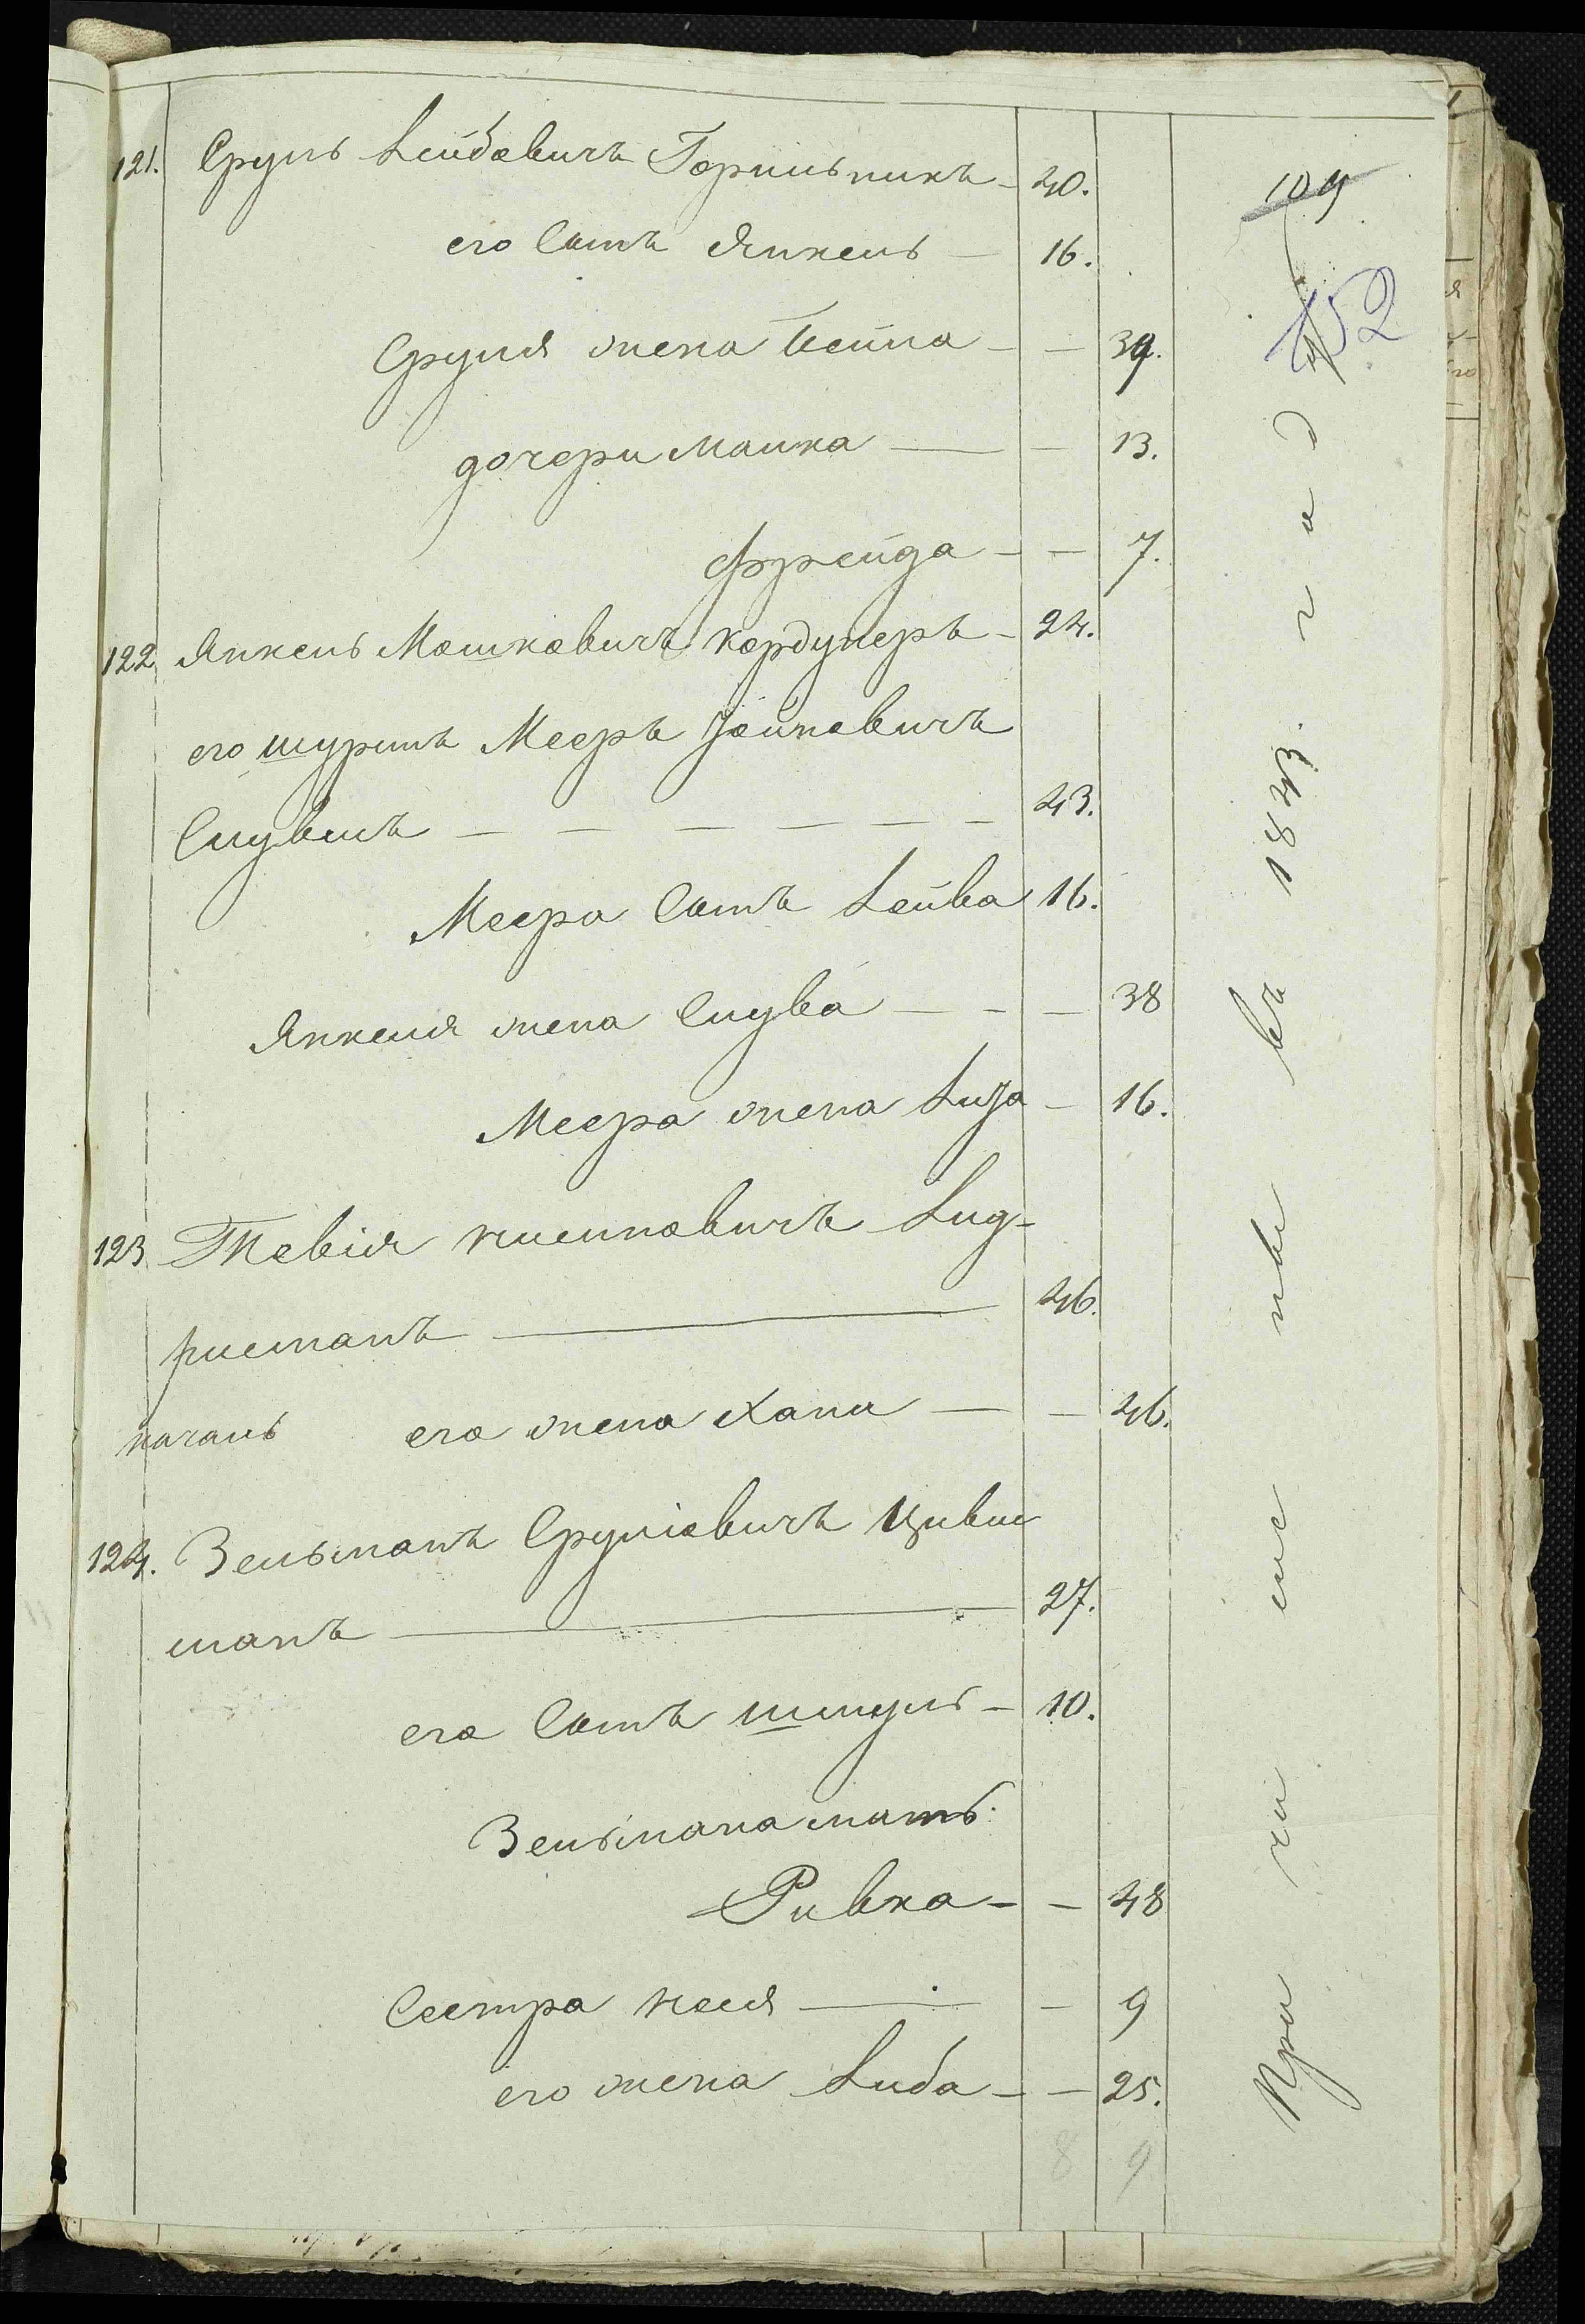 109
152
121. Сруль Лейбовичъ Горшиникъ - 40.
его Сынъ Янкель - 16.
Сруля жена Бейла - - 39.
дочери Малка - - 13.
Фрейда - - 7.
122 Янкель Мошковичъ Кордунеръ - 24.
его шуринъ Мееръ Хаимовичъ
Слувисъ - - - - - - 43.
Меера Сынъ Лейва 16.
Янкеля жена Слува - - - 38
Меера жена Лиза - 16.
123 Тевія Киселовичъ Лид-
рисманъ - 46.
качанъ его жена Хана - - 46.
124. Зельманъ Сруліовичъ Цивис
манъ - 27.
его Сынъ Шмуль - 10.
Зельмана мать
Ривка - - 48
Сестра Кеся - - 9
его жена Либа - - 25.
8 9
Причислены въ 1843. году